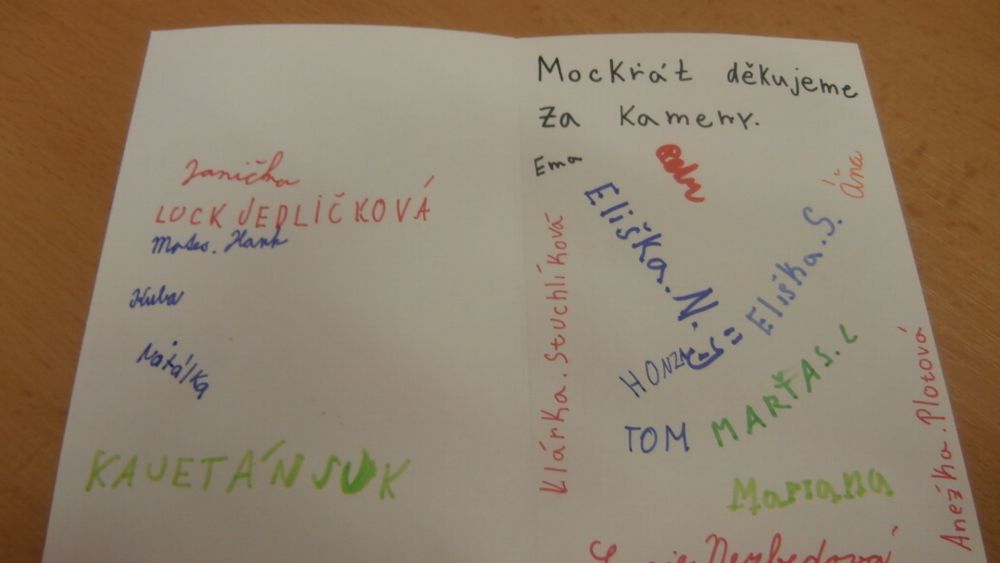 Janička
LUCK JEDLIČKOVÁ
Kuba
Natálka
KAJETÁN SUK
Mockrát děkujeme
za kameny.
Ema
Áňa
Eliška.N.
Eliška.S.
Klárka.Stuchlíková
HONZA
TOM
MARŤAS.L
Mariana
Anežka.Plotová
Nezbedová